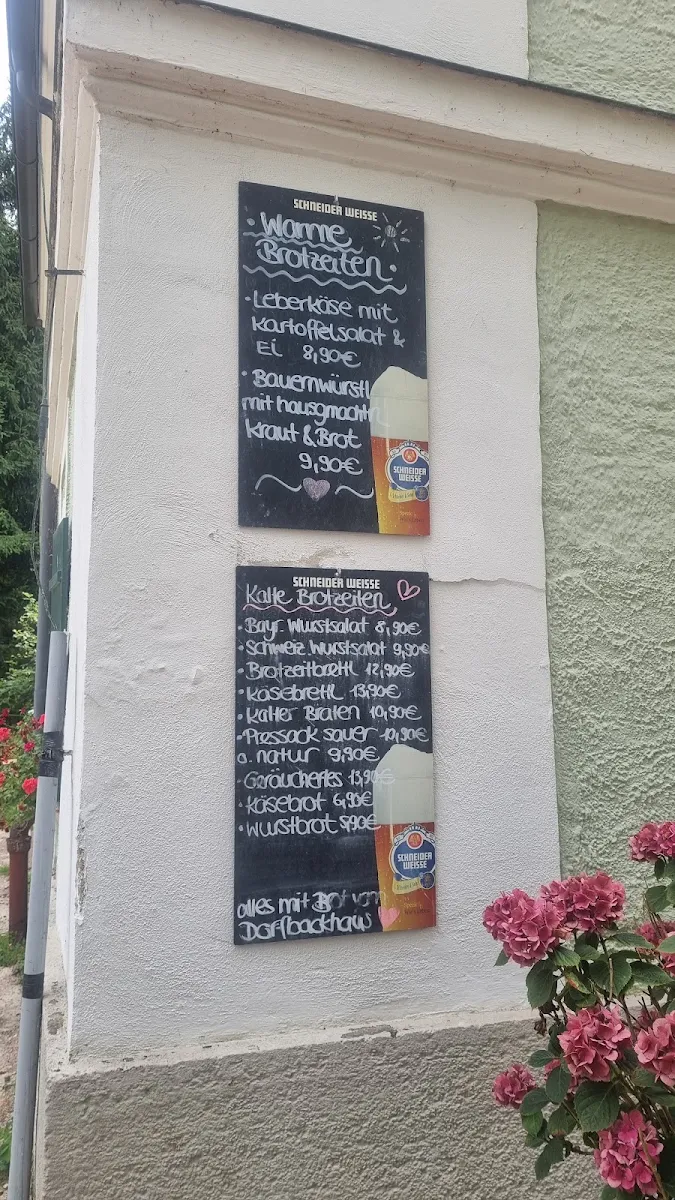 SCHNEIDER WEISSE
• Warme
Brotzeiten •
• Leberkäse mit
Kartoffelsalat &
Ei 8,90€
• Bauernwürstl
mit hausgmachtn
Kraut & Brot
9,90€
SCHNEIDER
WEISSE
SCHNEIDER WEISSE
Kalte Brotzeiten
• Bayr. Wurstsalat 8,90€
• Schweiz. Wurstsalat 9,90€
• Brotzeitbrettl 12,90€
• Käsebrettl 13,90€
• Kalter Braten 10,90€
• Pressack sauer 10,90€
o. natur 9,90€
• Geräuchertes 13,90€
• Käsebrot 6,90€
• Wurstbrot 5,90€
SCHNEIDER
WEISSE
alles mit Brot vom
Dorfbackhaus